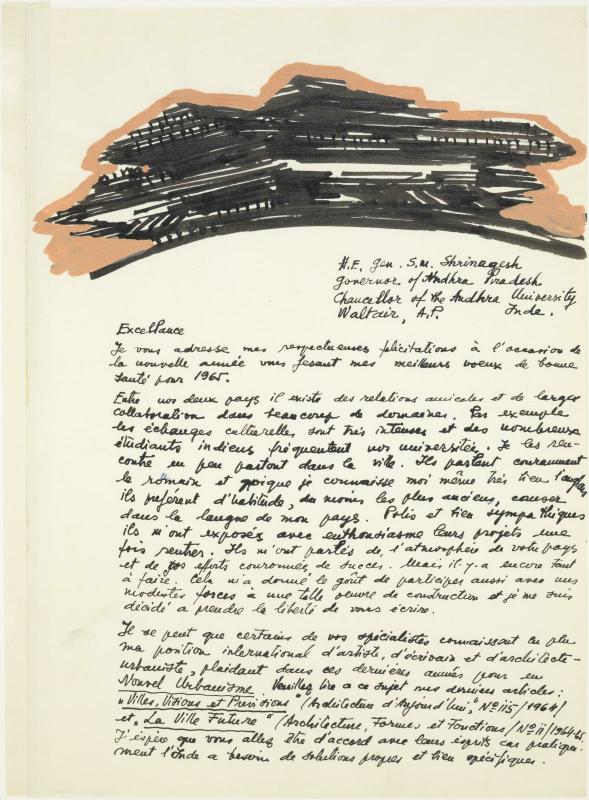 H.E. gen. S.M. Shrinagesh
governor of Andhra Pradesh
Chancellor of the Andhra University
Waltair, A.P. Inde.
Excellance
Je vous adresse mes respectueuses felicitations à l'occasion de
la nouvelle année vous fesant mes meilleurs voeux de bonne
santé pour 1965.
Entre nos deux pays il existe des relations amicales et de larges
collaboration dans beaucoup de domaines. Par exemple
les échanges culturelles sont très intenses et des nombreux
étudiants indiens fréquentent nos universités. Je les ren-
contre un peu partout dans la ville. Ils parlent couramment
le romain et quoique je connaisse moi même très bien l'anglais
ils preferent d'habitude, du moins les plus anciens, causer
dans la langue de mon pays. Polis et bien sympathiques
ils m'ont exposés avec enthousiasme leurs projets une
fois rentrer. Ils m'ont parlés de l'atmosphère de votre pays
et de efforts couronnés de succes. Mais il y a encore tant
à faire. Cela m'a donné le goût de participer aussi avec mes
modestes forces à une telle oeuvre de construction et je me suis
décidé a prendre la liberté de vous écrire.
Il se peut que certains de vos spécialistes connaissent un peu
ma position international d'artiste, d'écrivain et d'architecte-
urbaniste, plaidant dans ces dernières années pour un
Nouvel Urbanisme. Veuillez lire a ce sujet mes derniers articles:
"Villes, Visions et Prévisions" (Architecture d'Aujourd'hui," No 115/1964/
et "La Ville Future" (Architecture, Formes et Fonctions/No 11/1964-65.
J'éspère que vous allez être d'accord avec leurs esprits car pratique-
ment l'Inde a besoin de solutions propres et bien spécifiques.